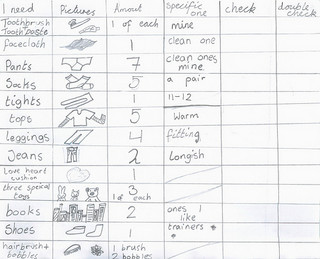 I need Pictures Amount specific one check double check
Toothbrush
Toothpaste 1 of each mine
facecloth 1 clean one
Pants 7 clean ones
mine
Socks 5 a pair
tights 1 11-12
tops 5 Warm
leggings 4 fitting
Jeans 2 Longish
Love heart
cushion 1
three special
toys 1 of 3 each
books 2 ones I
like
Shoes 1 trainers
hairbrush+
bobbles 1 brush
2 bobbles